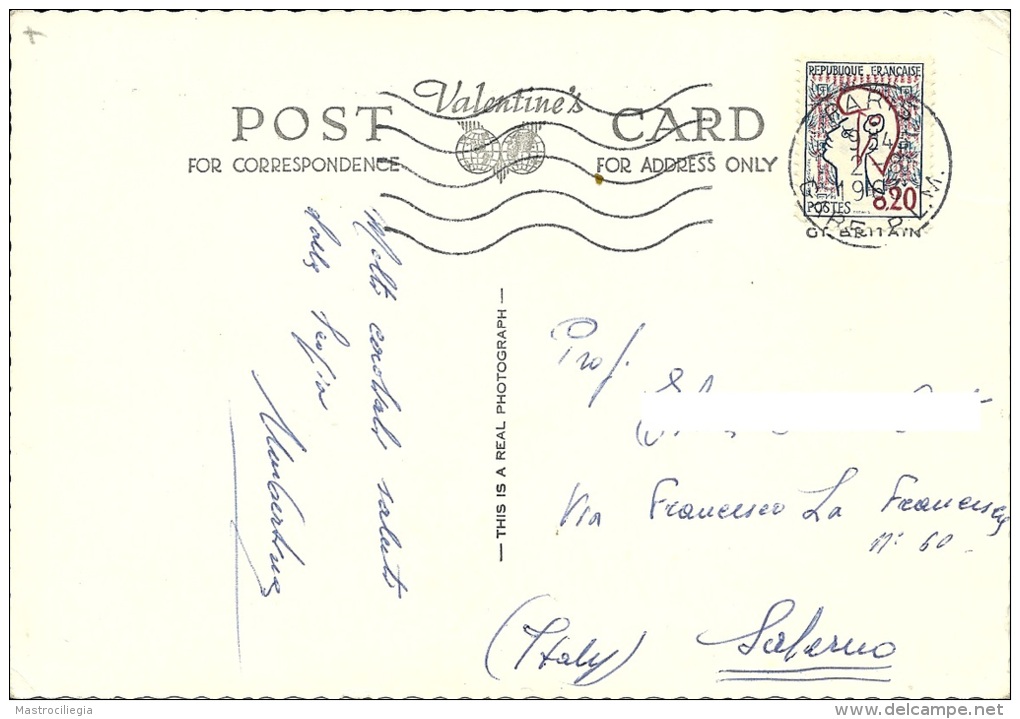 POST Valentine's CARD
FOR CORRESPONDENCE
FOR ADDRESS ONLY
REPUBLIQUE FRANÇAISE
PARIS
POSTES
0,20
GT. BRITAIN
Molti cordiali saluti
dalla
Umbertina
— THIS IS A REAL PHOTOGRAPH —
Prof.
Via Francesco La Francesca
N° 60
(Italy) Salerno
Mastrociliegia
delcampe.net